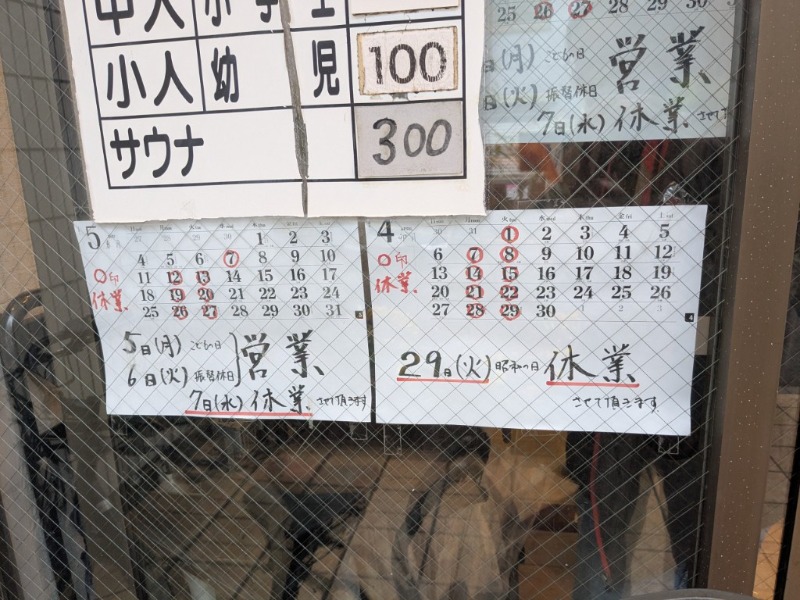 小人 幼 児 100
サウナ 300
25 26 27 28 29 30
(月) こどもの日 営業
(火) 振替休日
7日(水) 休業
5
1 2 3
4 5 6 7 8 9 10
○印 11 12 13 14 15 16 17
休業 18 19 20 21 22 23 24
25 26 27 28 29 30 31
5日(月) こどもの日 営業
6日(火) 振替休日
7日(水) 休業 させて頂きます
4
30 31 1 2 3 4 5
○印 6 7 8 9 10 11 12
休業 13 14 15 16 17 18 19
20 21 22 23 24 25 26
27 28 29 30 1 2 3
29日(火) 昭和の日 休業
させて頂きます